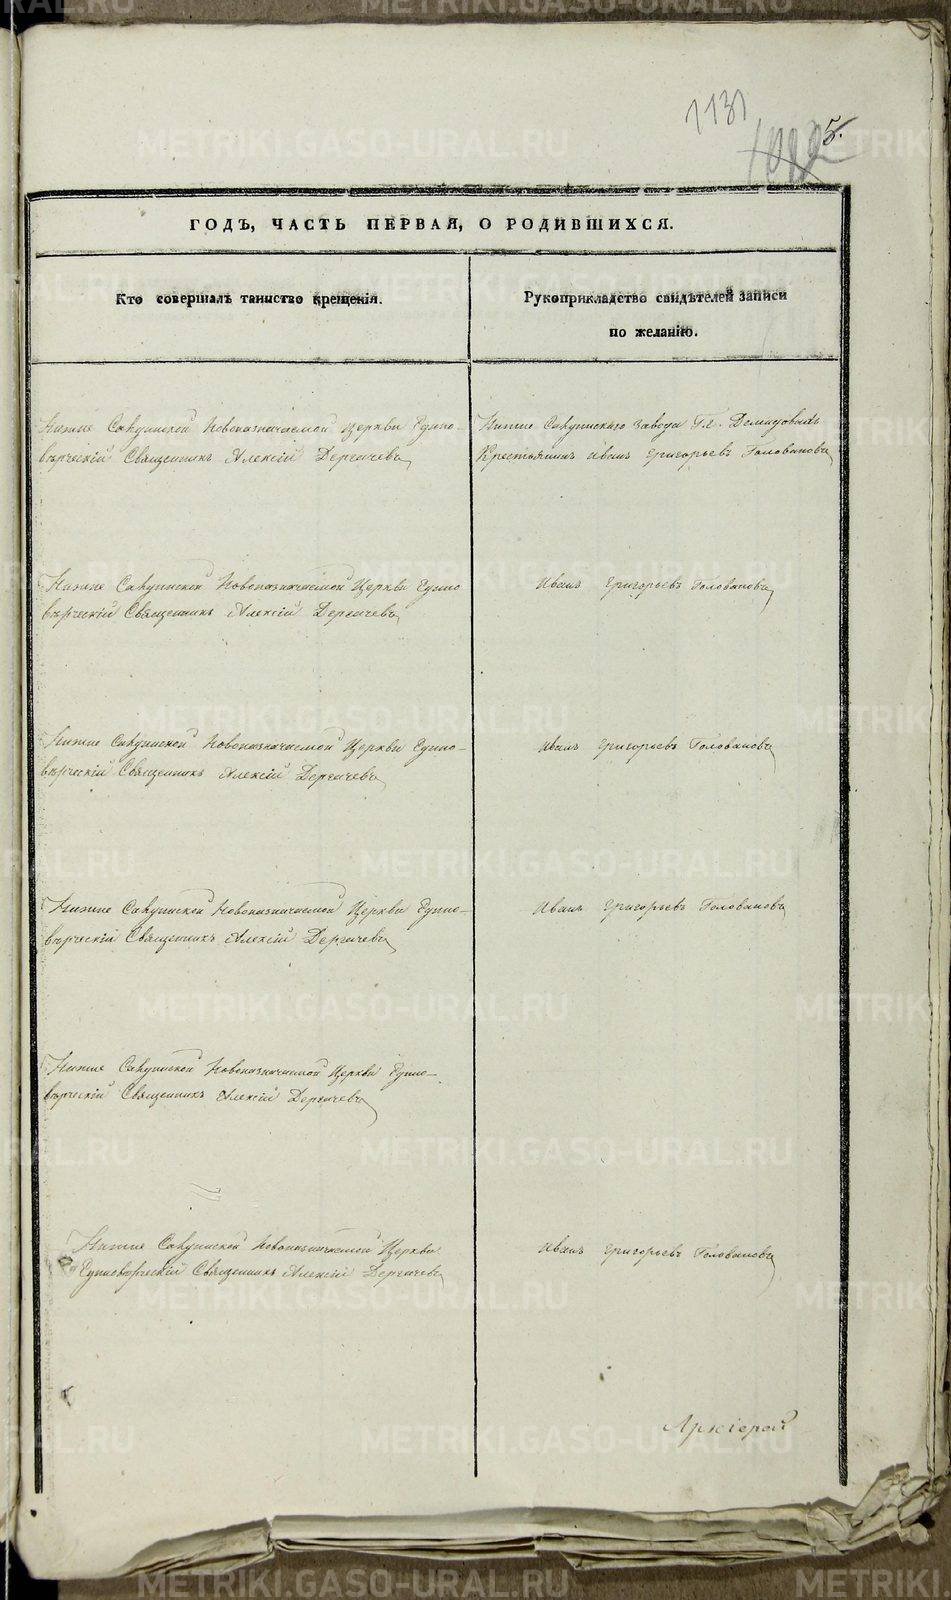 1131
5.
ГОДЪ, ЧАСТЬ ПЕРВАЯ, О РОДИВШИХСЯ.
Кто совершалъ таинство крещенія.
Рукоприкладство свидѣтелей записи
по желанію.
Нижне Салдинской Новоназначаемой церкви Едино-
вѣрческій Священникъ Алексій Дергачевъ
Нижне Салдинскаго завода Г.г. Демидовыхъ
Крестьянинъ Иванъ Григорьевъ Головановъ
Нижне Салдинской Новоназначаемой Церкви Едино
вѣрческій Священникъ Алексій Дергачевъ
Иванъ Григорьевъ Головановъ
Нижне Салдинской Новоназначаемой Церкви Едино-
вѣрческій Священникъ Алексій Дергачевъ
Иванъ Григорьевъ Головановъ
Нижне Салдинской Новоназначаемой Церкви Едино-
вѣрческій Священникъ Алексій Дергачевъ
Иванъ Григорьевъ Головановъ
Нижне Салдинской Новоназначаемой Церкви Едино-
вѣрческій Священникъ Алексій Дергачевъ
Нижне Салдинской Новоназначаемой Церкви
Единовѣрческій Священникъ Алексій Дергачевъ
Иванъ Григорьевъ Головановъ
Архіерей
METRIKI.GASO-URAL.RU